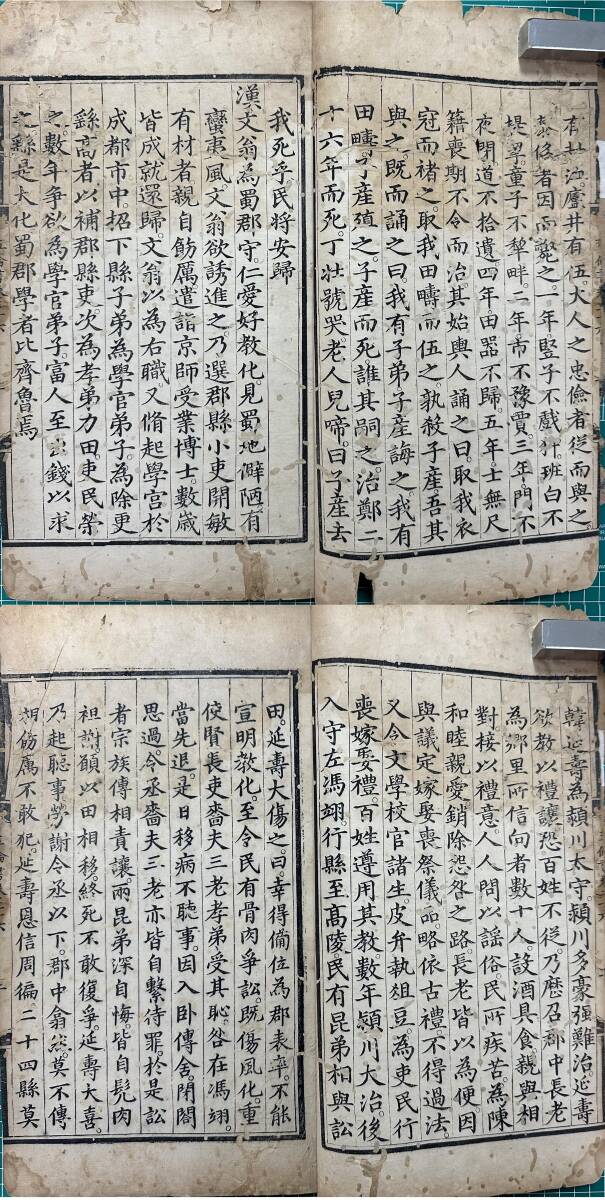 有封洫廬井有伍。大人之忠儉者從而與之
泰侈者因而斃之。一年豎子不戲狎。班白不
提挈。童子不犂畔。二年市不豫賈三年。門不
夜閉道不拾遺四年。田器不歸。五年。士無尺
籍喪期不令而治。其始輿人誦之曰。取我衣
冠而褚之。取我田疇而伍之。孰殺子產吾其
與之。既而誦之曰。我有子弟子產誨之。我有
田疇。子產殖之。子產而死。誰其嗣之。治鄭二
十六年而死。丁壯號哭。老人兒啼。曰子產去
我死乎民將安歸
漢文翁為蜀郡守。仁愛好教化。見蜀地僻陋有
蠻夷風。文翁欲誘進之。乃選郡縣小吏開敏
有材者親自飭厲。遣詣京師受業博士。數歲
皆成就還歸。文翁以為右職。又脩起學宮於
成都市中。招下縣子弟為學官弟子。為除更
繇高者以補郡縣吏。次為孝弟力田。吏民榮
之。數年爭欲為學官弟子。富人至出錢以求
之繇是大化蜀郡學者比齊魯焉
韓延壽為潁川太守。潁川多豪强難治延壽
欲教以禮讓恐百姓不從。乃歷召郡中長老
為鄉里所信向者數十人。設酒具食親與相
對接以禮意。人人問以謠俗。民所疾苦。為陳
和睦親愛銷除怨咎之路。長老皆以為便。因
與議定嫁娶喪祭儀品。略依古禮不得過法。
又令文學校官諸生。皮弁執俎豆。為吏民行
喪嫁娶禮。百姓遵用其教。數年潁川大治。後
入守左馮翊。行縣至高陵。民有昆弟相與訟
田。延壽大傷之。曰。幸得備位為郡表率。不能
宣明教化。至令民有骨肉爭訟。既傷風化。重
使賢長吏嗇夫三老孝弟受其恥。咎在馮翊。
當先退。是日移病不聽事。因入卧傳舍閉閤
思過。令丞嗇夫三老亦皆自繫待罪。於是訟
者宗族傳相責讓。兩昆弟深自悔。皆自髠肉
袒謝。願以田相移。終死不敢復爭。延壽大喜。
乃起聽事。勞謝令丞以下。郡中翕然。莫不傳
相飭厲不敢犯。延壽恩信周徧二十四縣莫